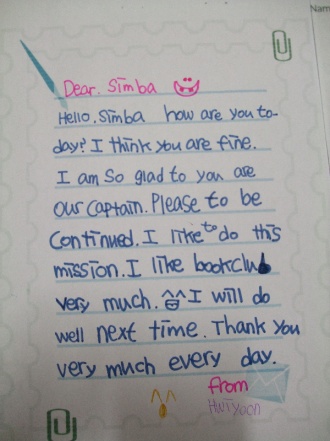 Nam
Dear. Simba
Hello. Simba how are you to-
day? I think you are fine.
I am so glad to you are
our captain. Please to be
continued. I like to do this
mission. I like bookclub
very much. ^^ I will do
well next time. Thank you
very much every day.
from
Hwiyoon